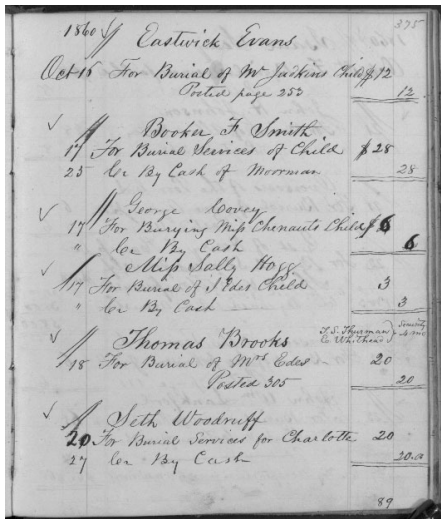 375
1860 Eastwick Evans
Oct 15 For Burial of Mr Judkins Child $12
Posted page 253 12
Booker F Smith
17 For Burial Services of Child $28
25 Cr By Cash of Moorman 28
George Covey
17 For Burying Miss Chenauts Child $6
" Cr By Cash 6
Miss Sally Hogg
17 For Burial of S Edes Child 3
" Cr By Cash 3
Thomas Brooks T. S. Thurman & Whitehead
18 For Burial of Mrs Edes 20
Posted 305 20
Seth Woodruff
20 For Burial Services for Charlotte 20
27 Cr By Cash 20.
89